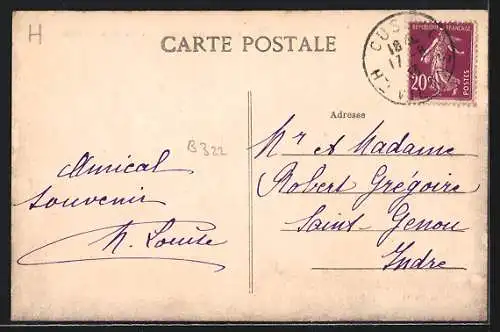 H
CARTE POSTALE
RÉPUBLIQUE FRANÇAISE
20c
POSTES
CUSS
18
17
Adresse
B322
Mr et Madame
Robert Grégoire
Saint-Genou
Indre
Amical
souvenir
Louise